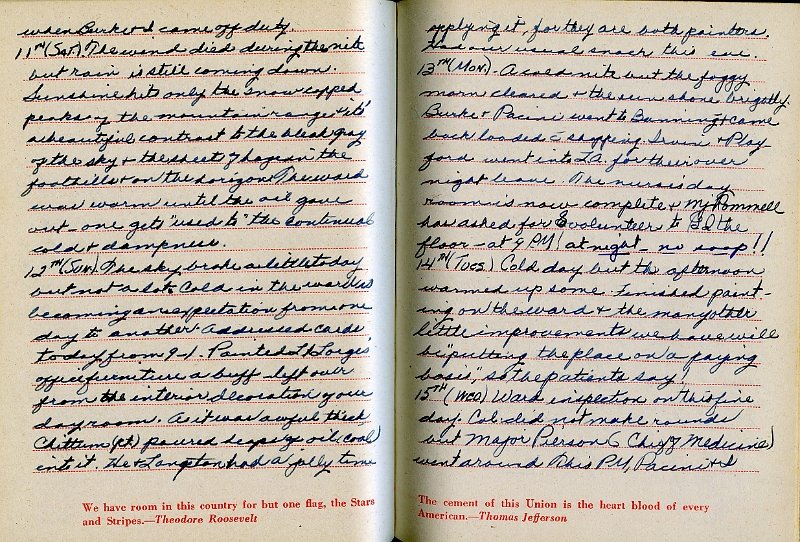 when Burke & I came off duty
11TH (SAT.) The wind died during the nite
but rain is still coming down.
Sunshine hits only the snow capped
peaks of the mountain ranges & it's
a beautiful contrast to the bleak gray
of the sky & the sheets of haze in the
foothills & on the horizon. The ward
was warm until the oil gave
out - one gets "used to" the continual
cold & dampness.
12TH (SUN.) The sky broke a little today
but not a lot. Cold in the ward is
becoming an expectation from one
day to another. Addressed cards
today from 9-1. Painted Lt
office furniture a buff left over
from the interior decoration of our
day room. As it was awful thick,
Chittum (pt) poured oil (coal)
into it. He & Langston had a jolly time
We have room in this country for but one flag, the Stars
and Stripes.—Theodore Roosevelt
applying it, for they are both painters.
Had our usual snack this eve.
13TH (MON.) - A cold nite but the foggy
morn cleared & the sun shone brightly.
Burke & Pacini went to Banning & came
back loaded c̄ shopping. Irwin & Play
ford went into L.A. for their over
night leave. The nurses' day
room is now complete & Maj Pommell
has asked for 8 volunteers to GI the
floor - at 9 PM! at night - no soap!!
14TH (TUES.) Cold day but the afternoon
warmed up some. Finished paint-
ing on the ward & the many other
little improvements we have will
be "putting the place on a paying
basis," so the patients say.
15TH (WED) Ward inspection on this fine
day. Col. did not make rounds
but Major Person (Chief of Medicine)
went around. This PM, Pacini & I
The cement of this Union is the heart blood of every
American.—Thomas Jefferson